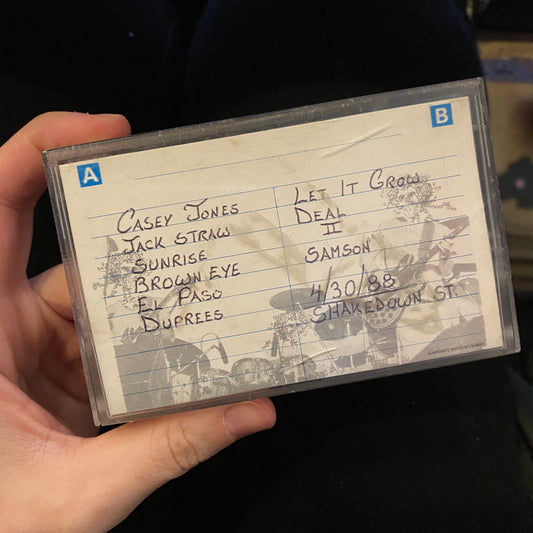 A
B
CASEY JONES
JACK STRAW
SUNRISE
BROWN EYE
EL PASO
DUPREES
LET IT GROW
DEAL
II
SAMSON
4/30/88
SHAKEDOWN ST